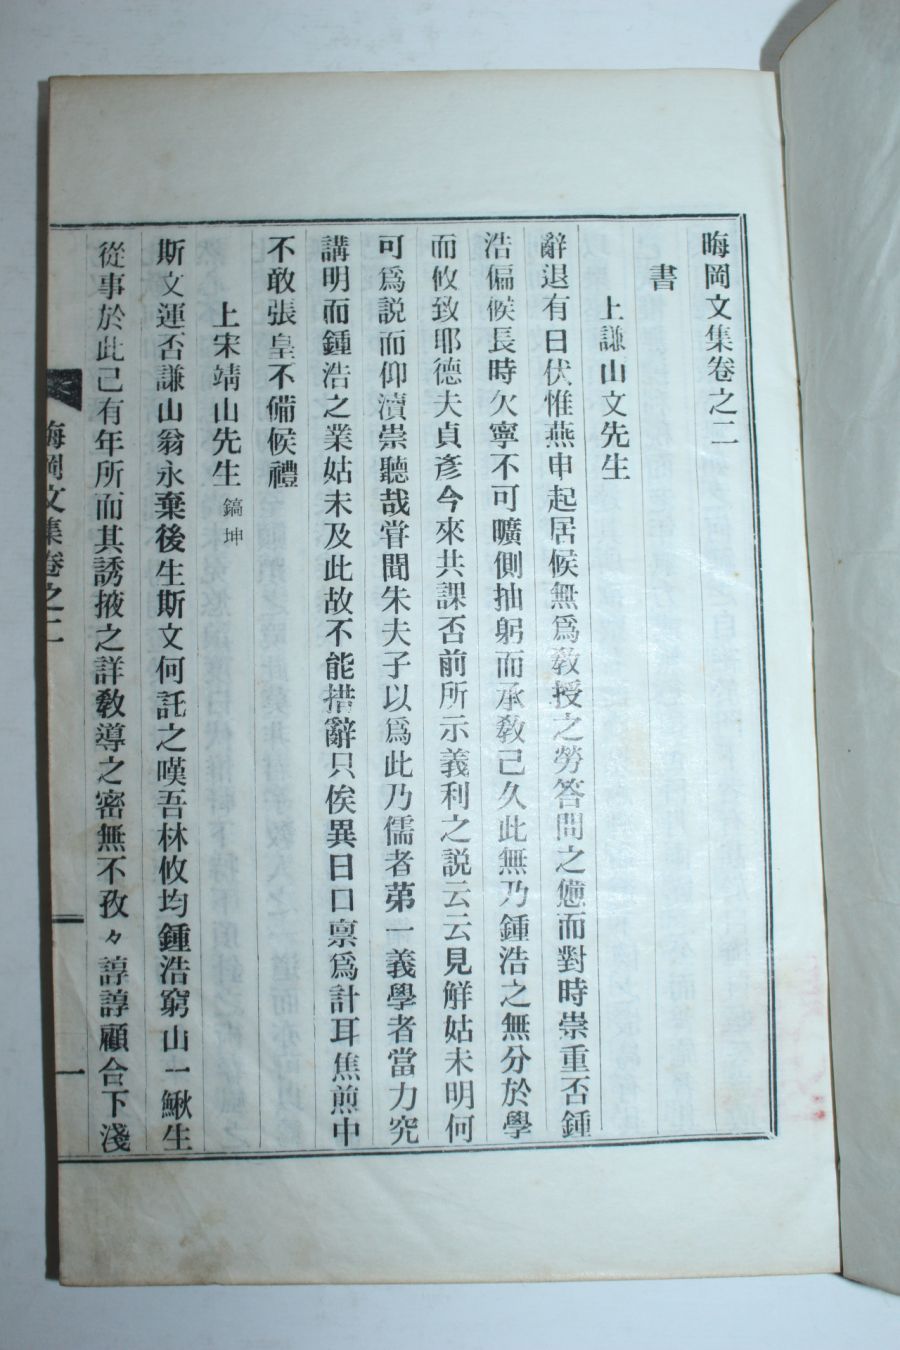 晦岡文集卷之二
書
上謙山文先生
辭退有日伏惟燕申起居候無爲敎授之勞答問之憊而對時崇重否鍾
浩偏候長時欠寧不可曠側抽躬而承敎己久此無乃鍾浩之無分於學
而攸致耶德夫貞彥今來共課否前所示義利之説云云見觧姑未明何
可爲説而仰瀆崇聽哉甞聞朱夫子以爲此乃儒者苐一義學者當力究
講明而鍾浩之業姑未及此故不能措辭只俟異日口禀爲計耳焦煎中
不敢張皇不備候禮
上宋靖山先生 鎬坤
斯文運否謙山翁永棄後生斯文何託之嘆吾林攸均鍾浩窮山一鰍生
從事於此己有年所而其誘掖之詳敎導之密無不孜々諄諄顧合下淺
晦岡文集卷之二
一